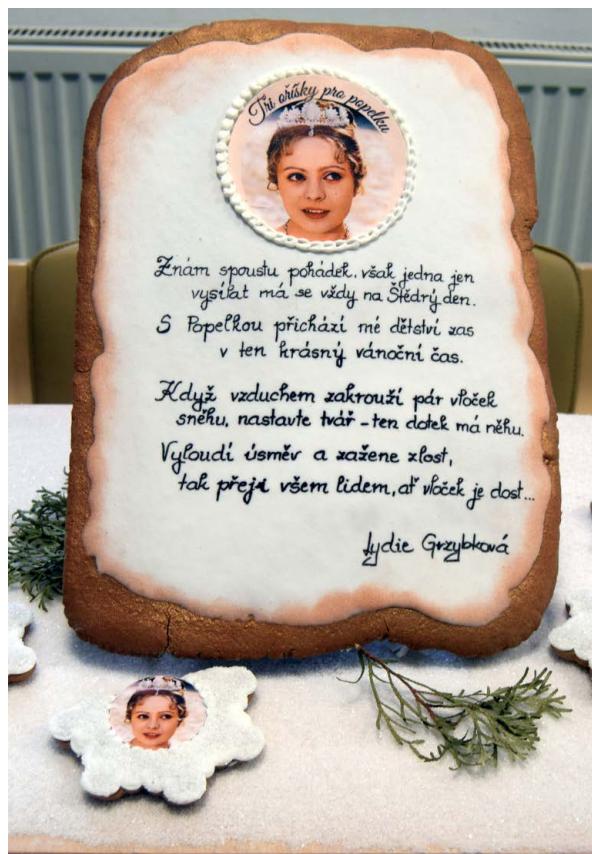 Tři oříšky pro popelku
Znám spoustu pohádek, však jedna jen
vysílat má se vždy na Štědrý den.
S Popelkou přichází mé dětství zas
v ten krásný vánoční čas.
Když vzduchem zakrouží pár vloček
sněhu, nastavte tvář - ten dotek má něhu.
Vyloudí úsměv a zažene zlost,
tak přeji všem lidem, ať vloček je dost...
Lydie Grzybková